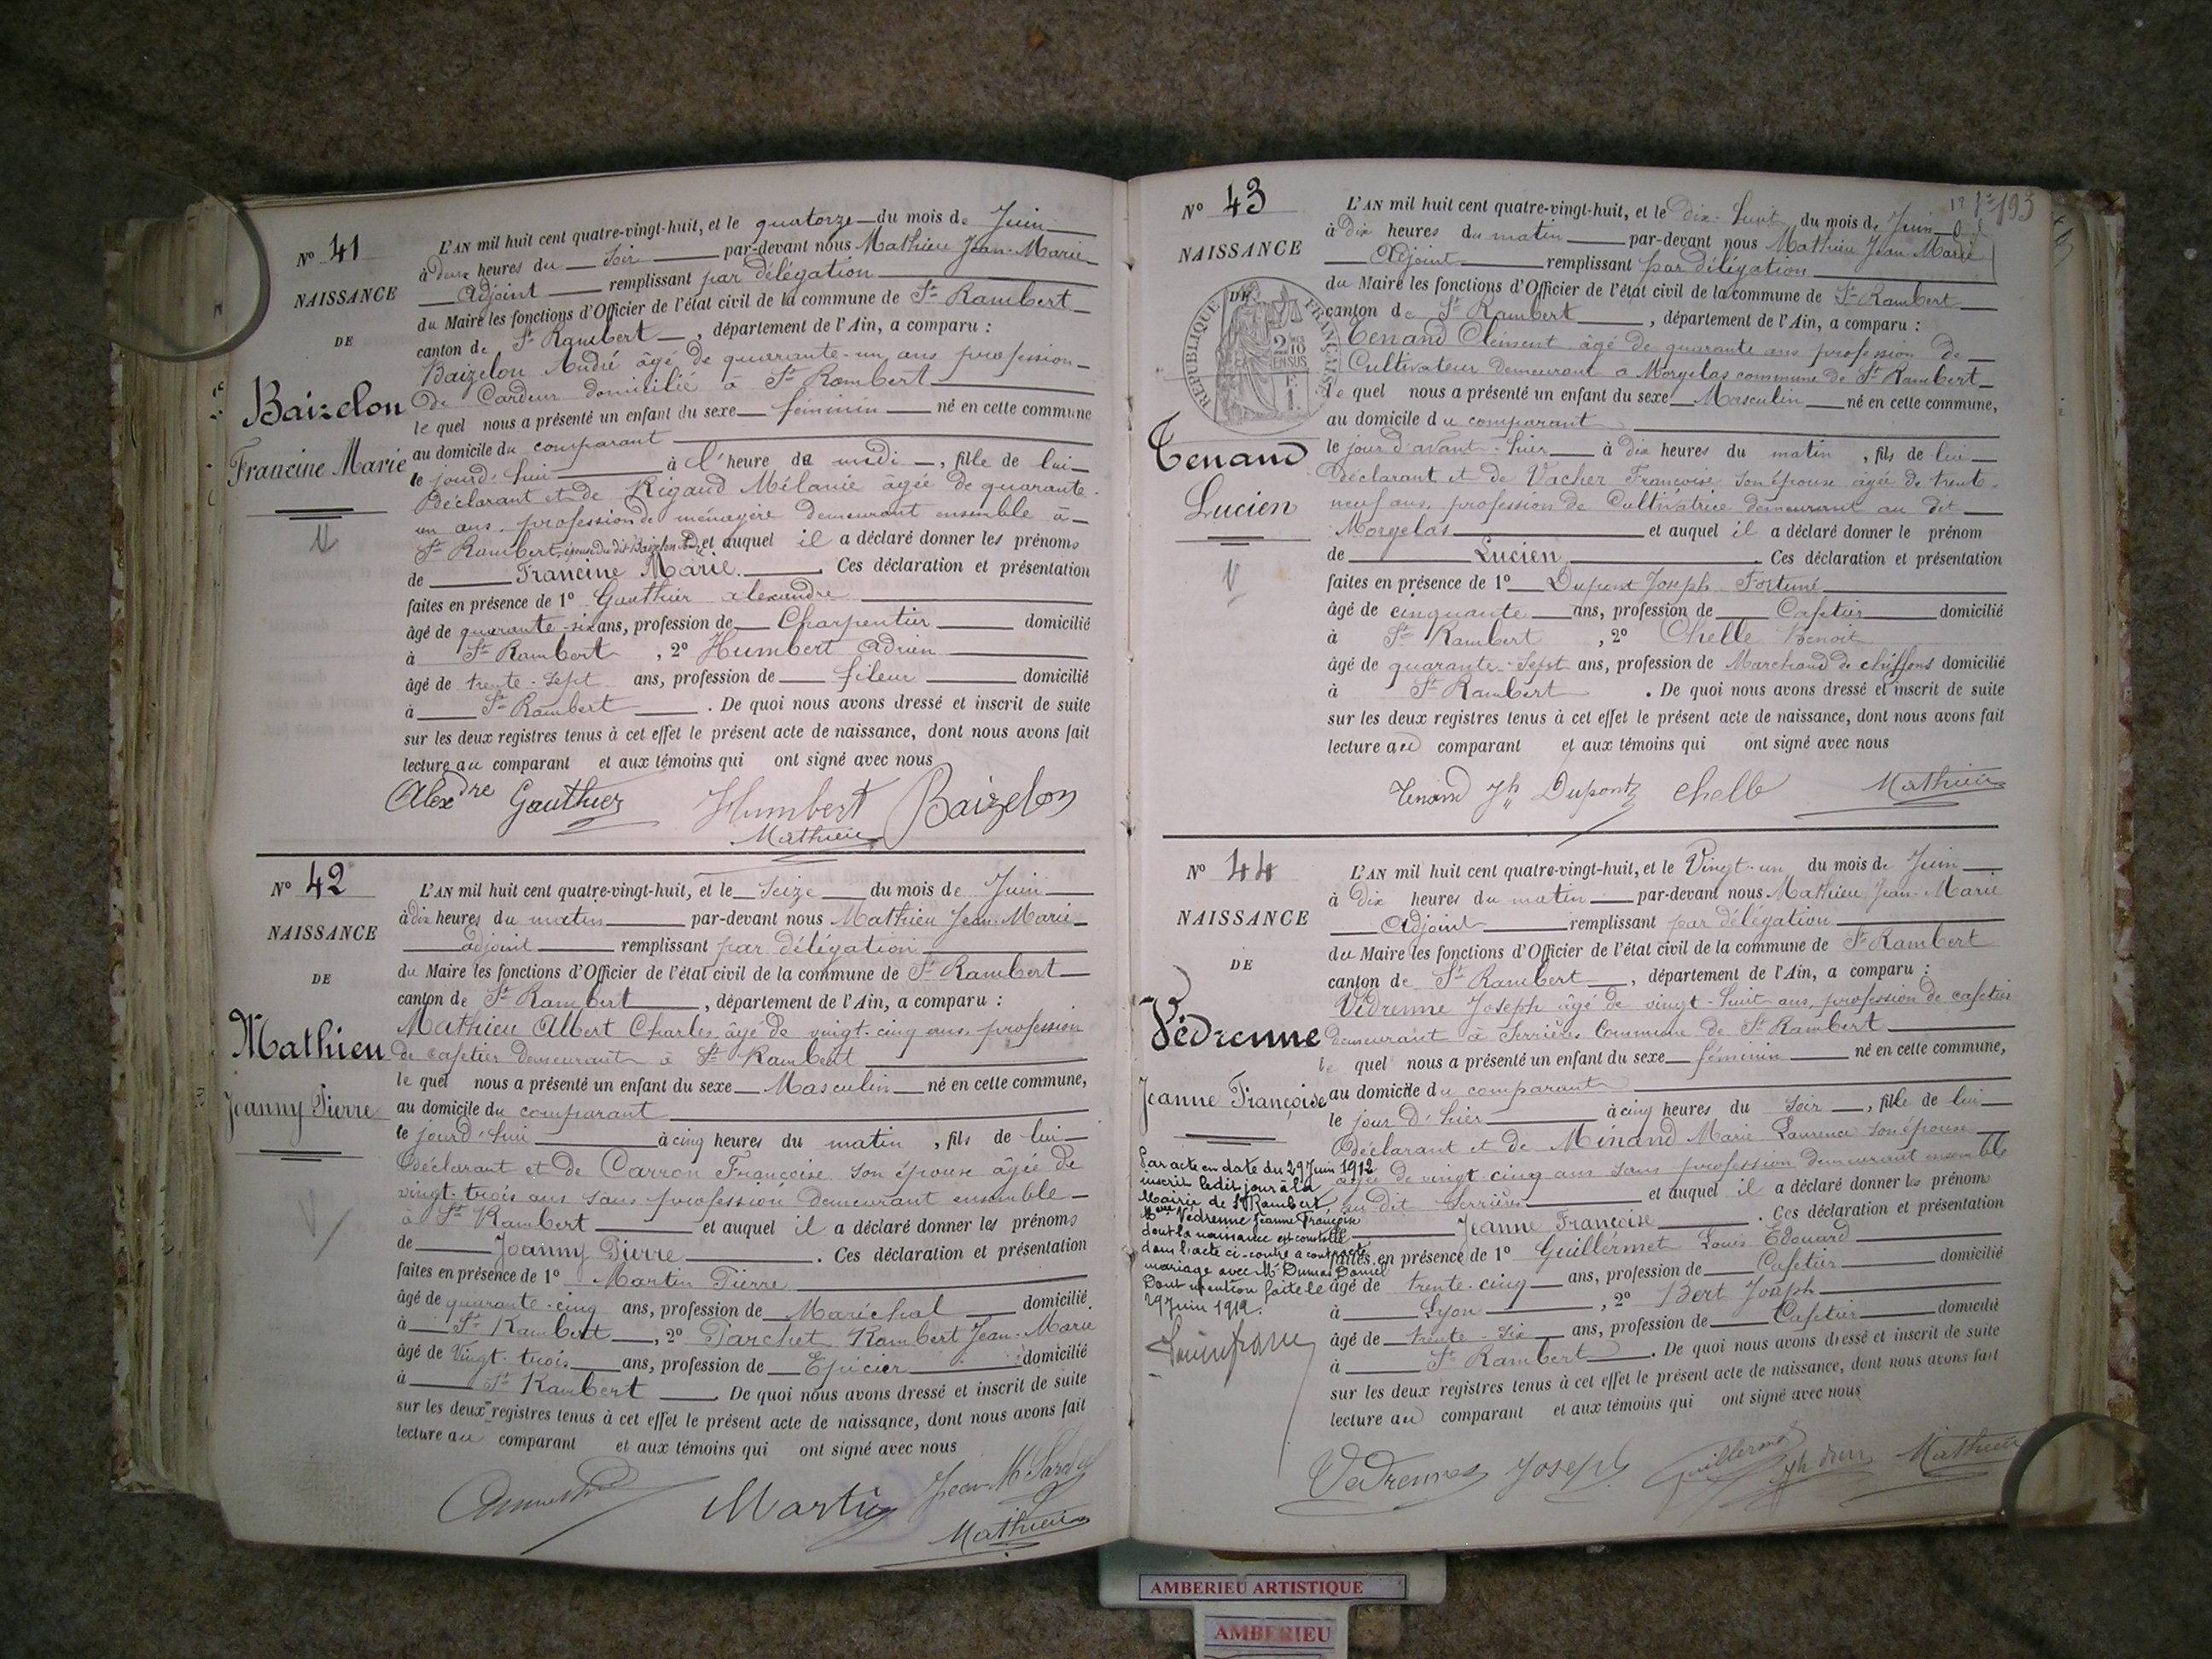 N° 41
NAISSANCE
DE
Baizelon
Francine Marie
L'AN mil huit cent quatre-vingt-huit, et le quatorze du mois de Juin
à deux heures du soir par-devant nous Mathieu Jean-Marie
Adjoint remplissant par délégation
du Maire les fonctions d'Officier de l'état civil de la commune de St Rambert
canton de St Rambert, département de l'Ain, a comparu :
Baizelon André âgé de quarante-un ans profession
de Cardeur domicilié à St Rambert
lequel nous a présenté un enfant du sexe féminin né en cette commune
au domicile du comparant
le jourd'hui à l'heure de midi, fille de lui
déclarant et de Rigaud Mélanie âgée de quarante-
un ans, profession de ménagère demeurant ensemble à
St Rambert, épouse du dit Baizelon André et auquel il a déclaré donner les prénoms
de Francine Marie. Ces déclaration et présentation
faites en présence de 1° Gauthier alexandre
âgé de quarante-six ans, profession de Charpentier domicilié
à St Rambert, 2° Humbert Adrien
âgé de trente-sept ans, profession de fileur domicilié
à St Rambert. De quoi nous avons dressé et inscrit de suite
sur les deux registres tenus à cet effet le présent acte de naissance, dont nous avons fait
lecture au comparant et aux témoins qui ont signé avec nous
Alexdre Gauthier Humbert Baizelon
Mathieu
N° 42
NAISSANCE
DE
Mathieu
Joanny Pierre
L'AN mil huit cent quatre-vingt-huit, et le Seize du mois de Juin
à dix heures du matin par-devant nous Mathieu Jean-Marie
adjoint remplissant par délégation
du Maire les fonctions d'Officier de l'état civil de la commune de St Rambert
canton de St Rambert, département de l'Ain, a comparu :
Mathieu Albert Charles, âgé de vingt-cinq ans profession
de cafetier demeurant à St Rambert
lequel nous a présenté un enfant du sexe Masculin né en cette commune,
au domicile du comparant
le jourd'hui à cinq heures du matin, fils de lui
déclarant et de Carron Françoise son épouse âgée de
vingt-trois ans sans profession demeurant ensemble
à St Rambert et auquel il a déclaré donner les prénoms
de Joanny Pierre. Ces déclaration et présentation
faites en présence de 1° Martin Pierre
âgé de quarante-cinq ans, profession de Maréchal domicilié
à St Rambert, 2° Parchet Rambert Jean-Marie
âgé de Vingt-trois ans, profession de Epicier domicilié
à St Rambert. De quoi nous avons dressé et inscrit de suite
sur les deux registres tenus à cet effet le présent acte de naissance, dont nous avons fait
lecture au comparant et aux témoins qui ont signé avec nous
Martin Jean M
Mathieu
193
N° 43
NAISSANCE
DE
RÉPUBLIQUE FRANÇAISE
2/10 EN SUS
Tenand
Lucien
L'AN mil huit cent quatre-vingt-huit, et le dix-huit du mois de Juin
à Dix heures du matin par-devant nous Mathieu Jean-Marie
Adjoint remplissant par délégation
du Maire les fonctions d'Officier de l'état civil de la commune de St Rambert
canton de St Rambert, département de l'Ain, a comparu :
Tenand Clément âgé de quarante ans profession de
Cultivateur demeurant à Morgelas commune de St Rambert
lequel nous a présenté un enfant du sexe Masculin né en cette commune,
au domicile du comparant
le jour d'avant-hier à dix heures du matin, fils de lui
déclarant et de Vacher Françoise son épouse âgée de trente-
neuf ans, profession de Cultivatrice demeurant au dit
Morgelas et auquel il a déclaré donner le prénom
de Lucien. Ces déclaration et présentation
faites en présence de 1° Dupont Joseph Fortuné
âgé de cinquante ans, profession de Cafetier domicilié
à St Rambert, 2° Chelle Benoit
âgé de quarante-sept ans, profession de Marchand de chiffons domicilié
à St Rambert. De quoi nous avons dressé et inscrit de suite
sur les deux registres tenus à cet effet le présent acte de naissance, dont nous avons fait
lecture au comparant et aux témoins qui ont signé avec nous
Tenand Jh Dupont Chelle Mathieu
N° 44
NAISSANCE
DE
Védrenne
Jeanne Françoise
Par acte en date du 29 Juin 1912
inscrit ledit jour à la
Mairie de St Rambert,
Védrenne Jeanne Françoise
dont la naissance est constatée
dans l'acte ci-contre a contracté
mariage avec Mr Dumas Daniel
Dont mention faite le
29 Juin 1912.
L'AN mil huit cent quatre-vingt-huit, et le Vingt-un du mois de Juin
à Dix heures du matin par-devant nous Mathieu Jean-Marie
Adjoint remplissant par délégation
du Maire les fonctions d'Officier de l'état civil de la commune de St Rambert
canton de St Rambert, département de l'Ain, a comparu :
Védrenne Joseph âgé de vingt-huit ans, profession de cafetier
demeurant à Serrières Commune de St Rambert
lequel nous a présenté un enfant du sexe féminin né en cette commune,
au domicile du comparant
le jour d'hier à cinq heures du soir, fille de lui
déclarant et de Minand Marie Laurence son épouse
âgée de vingt cinq ans sans profession demeurant ensemble
au dit Serrières et auquel il a déclaré donner les prénoms
Jeanne Françoise. Ces déclaration et présentation
faites en présence de 1° Guillermet Louis Edouard
âgé de trente-cinq ans, profession de Cafetier domicilié
à Lyon, 2° Bert Joseph
âgé de trente-six ans, profession de Cafetier domicilié
à St Rambert. De quoi nous avons dressé et inscrit de suite
sur les deux registres tenus à cet effet le présent acte de naissance, dont nous avons fait
lecture au comparant et aux témoins qui ont signé avec nous
Vedrennes Joseph Guillermet Jh Bert Mathieu
AMBERIEU ARTISTIQUE
AMBERIEU